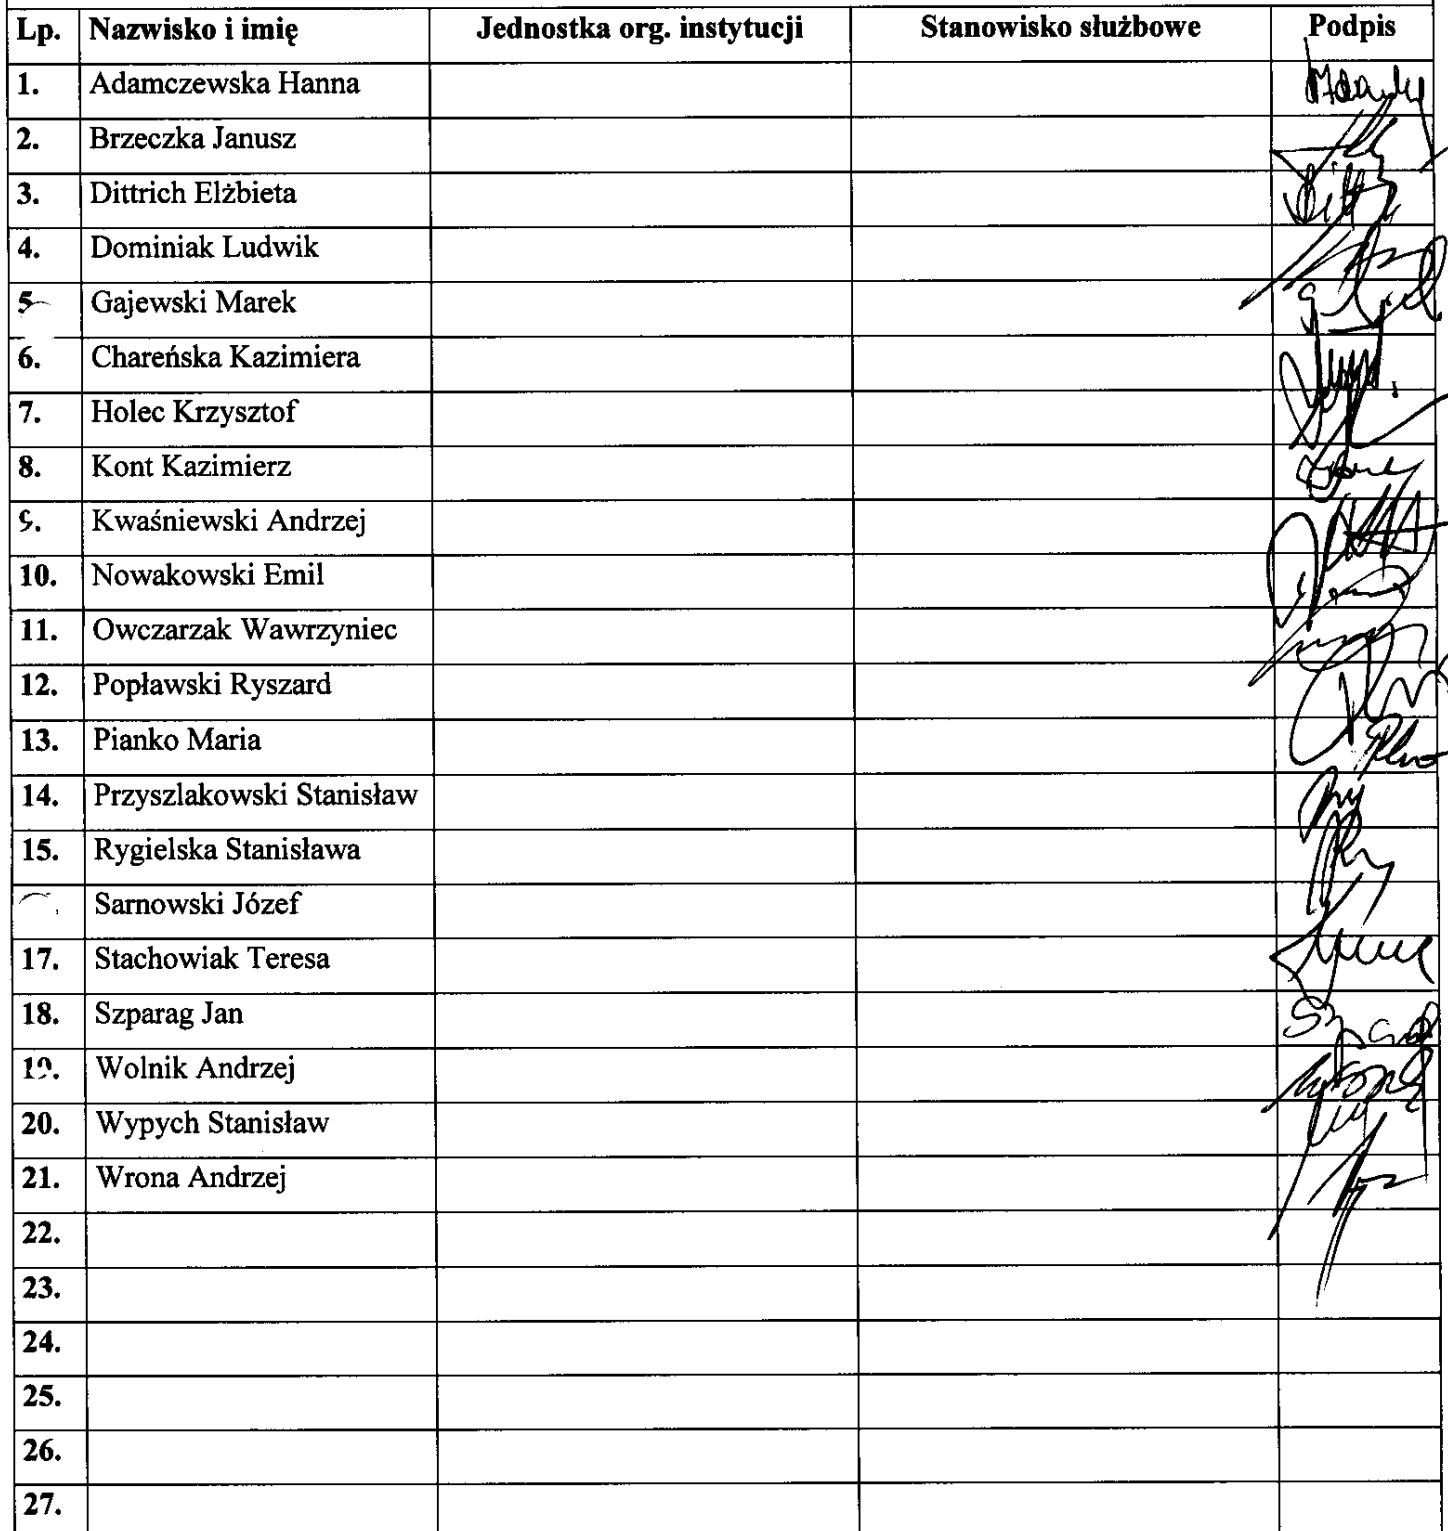 Lp. Nazwisko i imię Jednostka org. instytucji Stanowisko służbowe Podpis
1. Adamczewska Hanna
2. Brzeczka Janusz
3. Dittrich Elżbieta
4. Dominiak Ludwik
5 Gajewski Marek
6. Chareńska Kazimiera
7. Holec Krzysztof
8. Kont Kazimierz
9. Kwaśniewski Andrzej
10. Nowakowski Emil
11. Owczarzak Wawrzyniec
12. Popławski Ryszard
13. Pianko Maria
14. Przyszlakowski Stanisław
15. Rygielska Stanisława
Sarnowski Józef
17. Stachowiak Teresa
18. Szparag Jan
19. Wolnik Andrzej
20. Wypych Stanisław
21. Wrona Andrzej
22.
23.
24.
25.
26.
27.